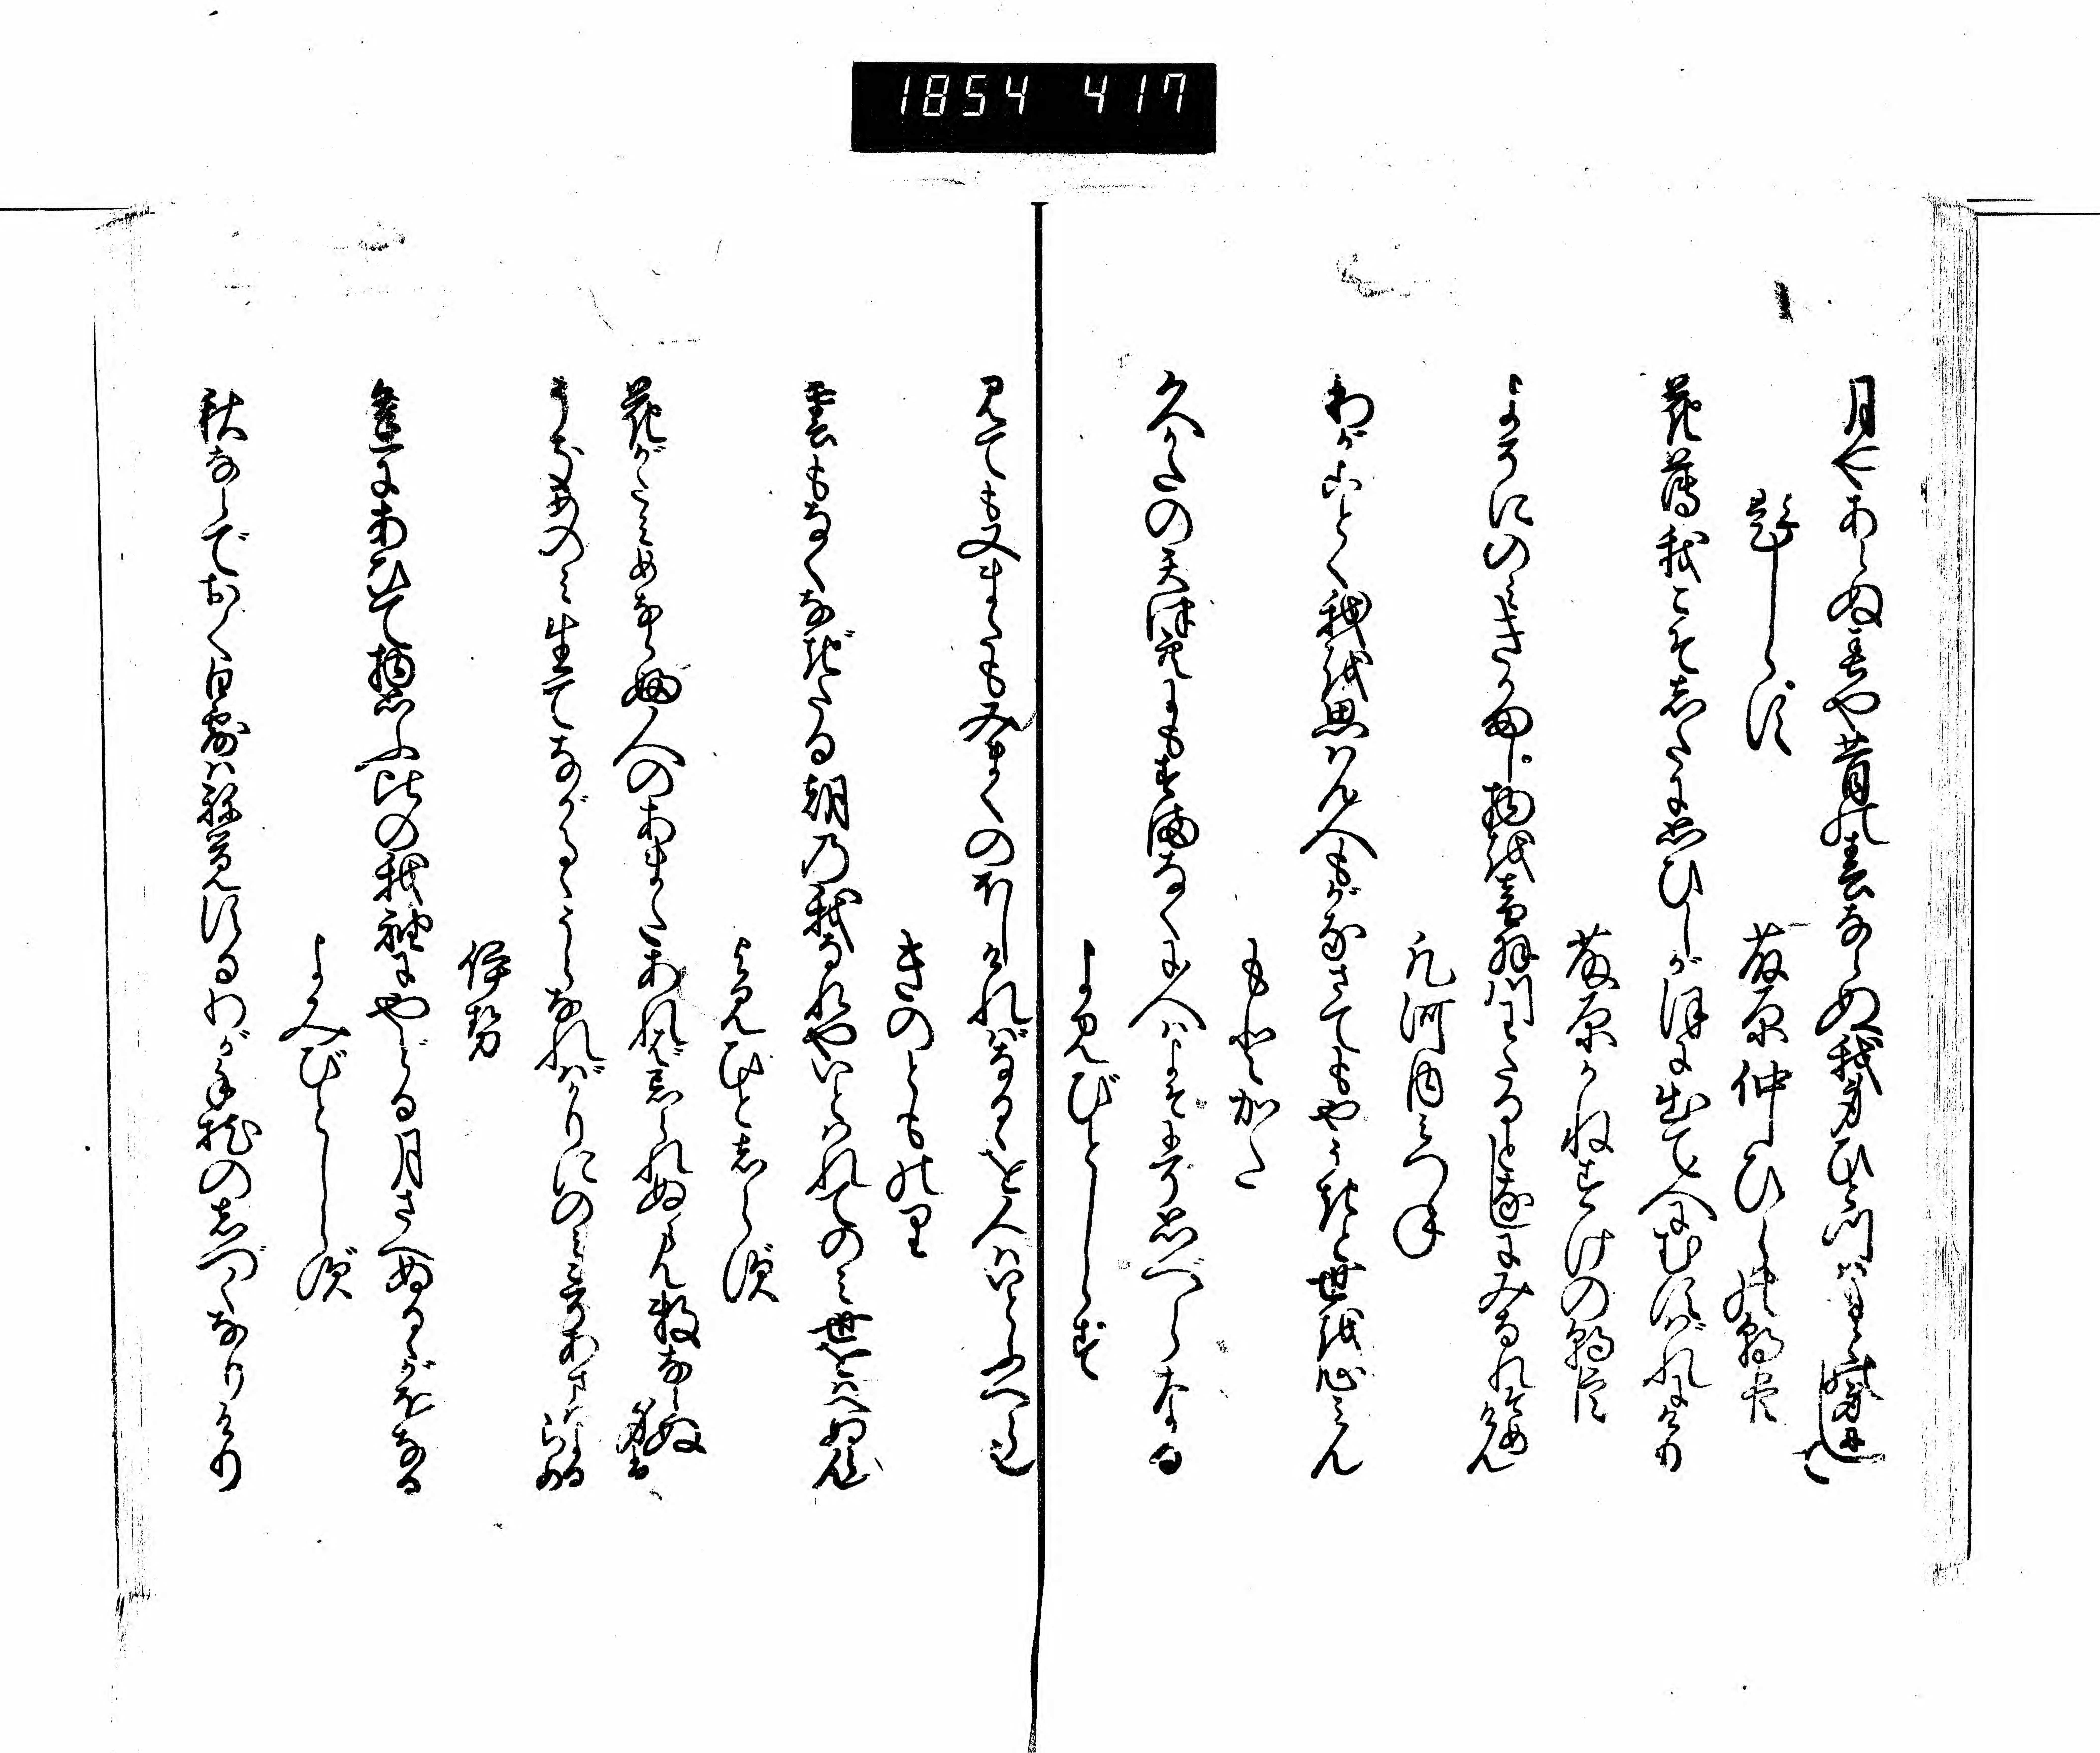 1854 417
月やあらぬ春や昔の春ならぬ我身ひとつはもとの身にして
題しらす
藤原仲ひらの朝臣
花薄我こそ志たに思ひしがほに出て人にむすばれにけり
藤原かねすけの朝臣
よそにのみきかまし物を音羽川わたるとなしにみなれそめけん
凡河内みつね
わがことく我を思はん人もがなさてもやうきと世を心みん
もとかた
久かたの天津空にもすまなくに人はよそにそ思べらなる
よみびとしらず
見ても又またもみまくのほしければなるゝを人はいとふべら也
きのとものり
雲もなくなぎたる朝の我なれやいとはれてのみ世をばへぬらん
よみ人しらず
花がたみめならぶ人のあまたあればわすられぬらん数ならぬ身は
うきめのみ生てながるゝうらなればかりにのみこそあまはよるらめ
伊勢
逢にあひて物思ふ比の我袖にやどる月さへぬるゝがほなる
よみびとしらず
秋ならでおく白露はね覚するわが手枕の志づくなりけり